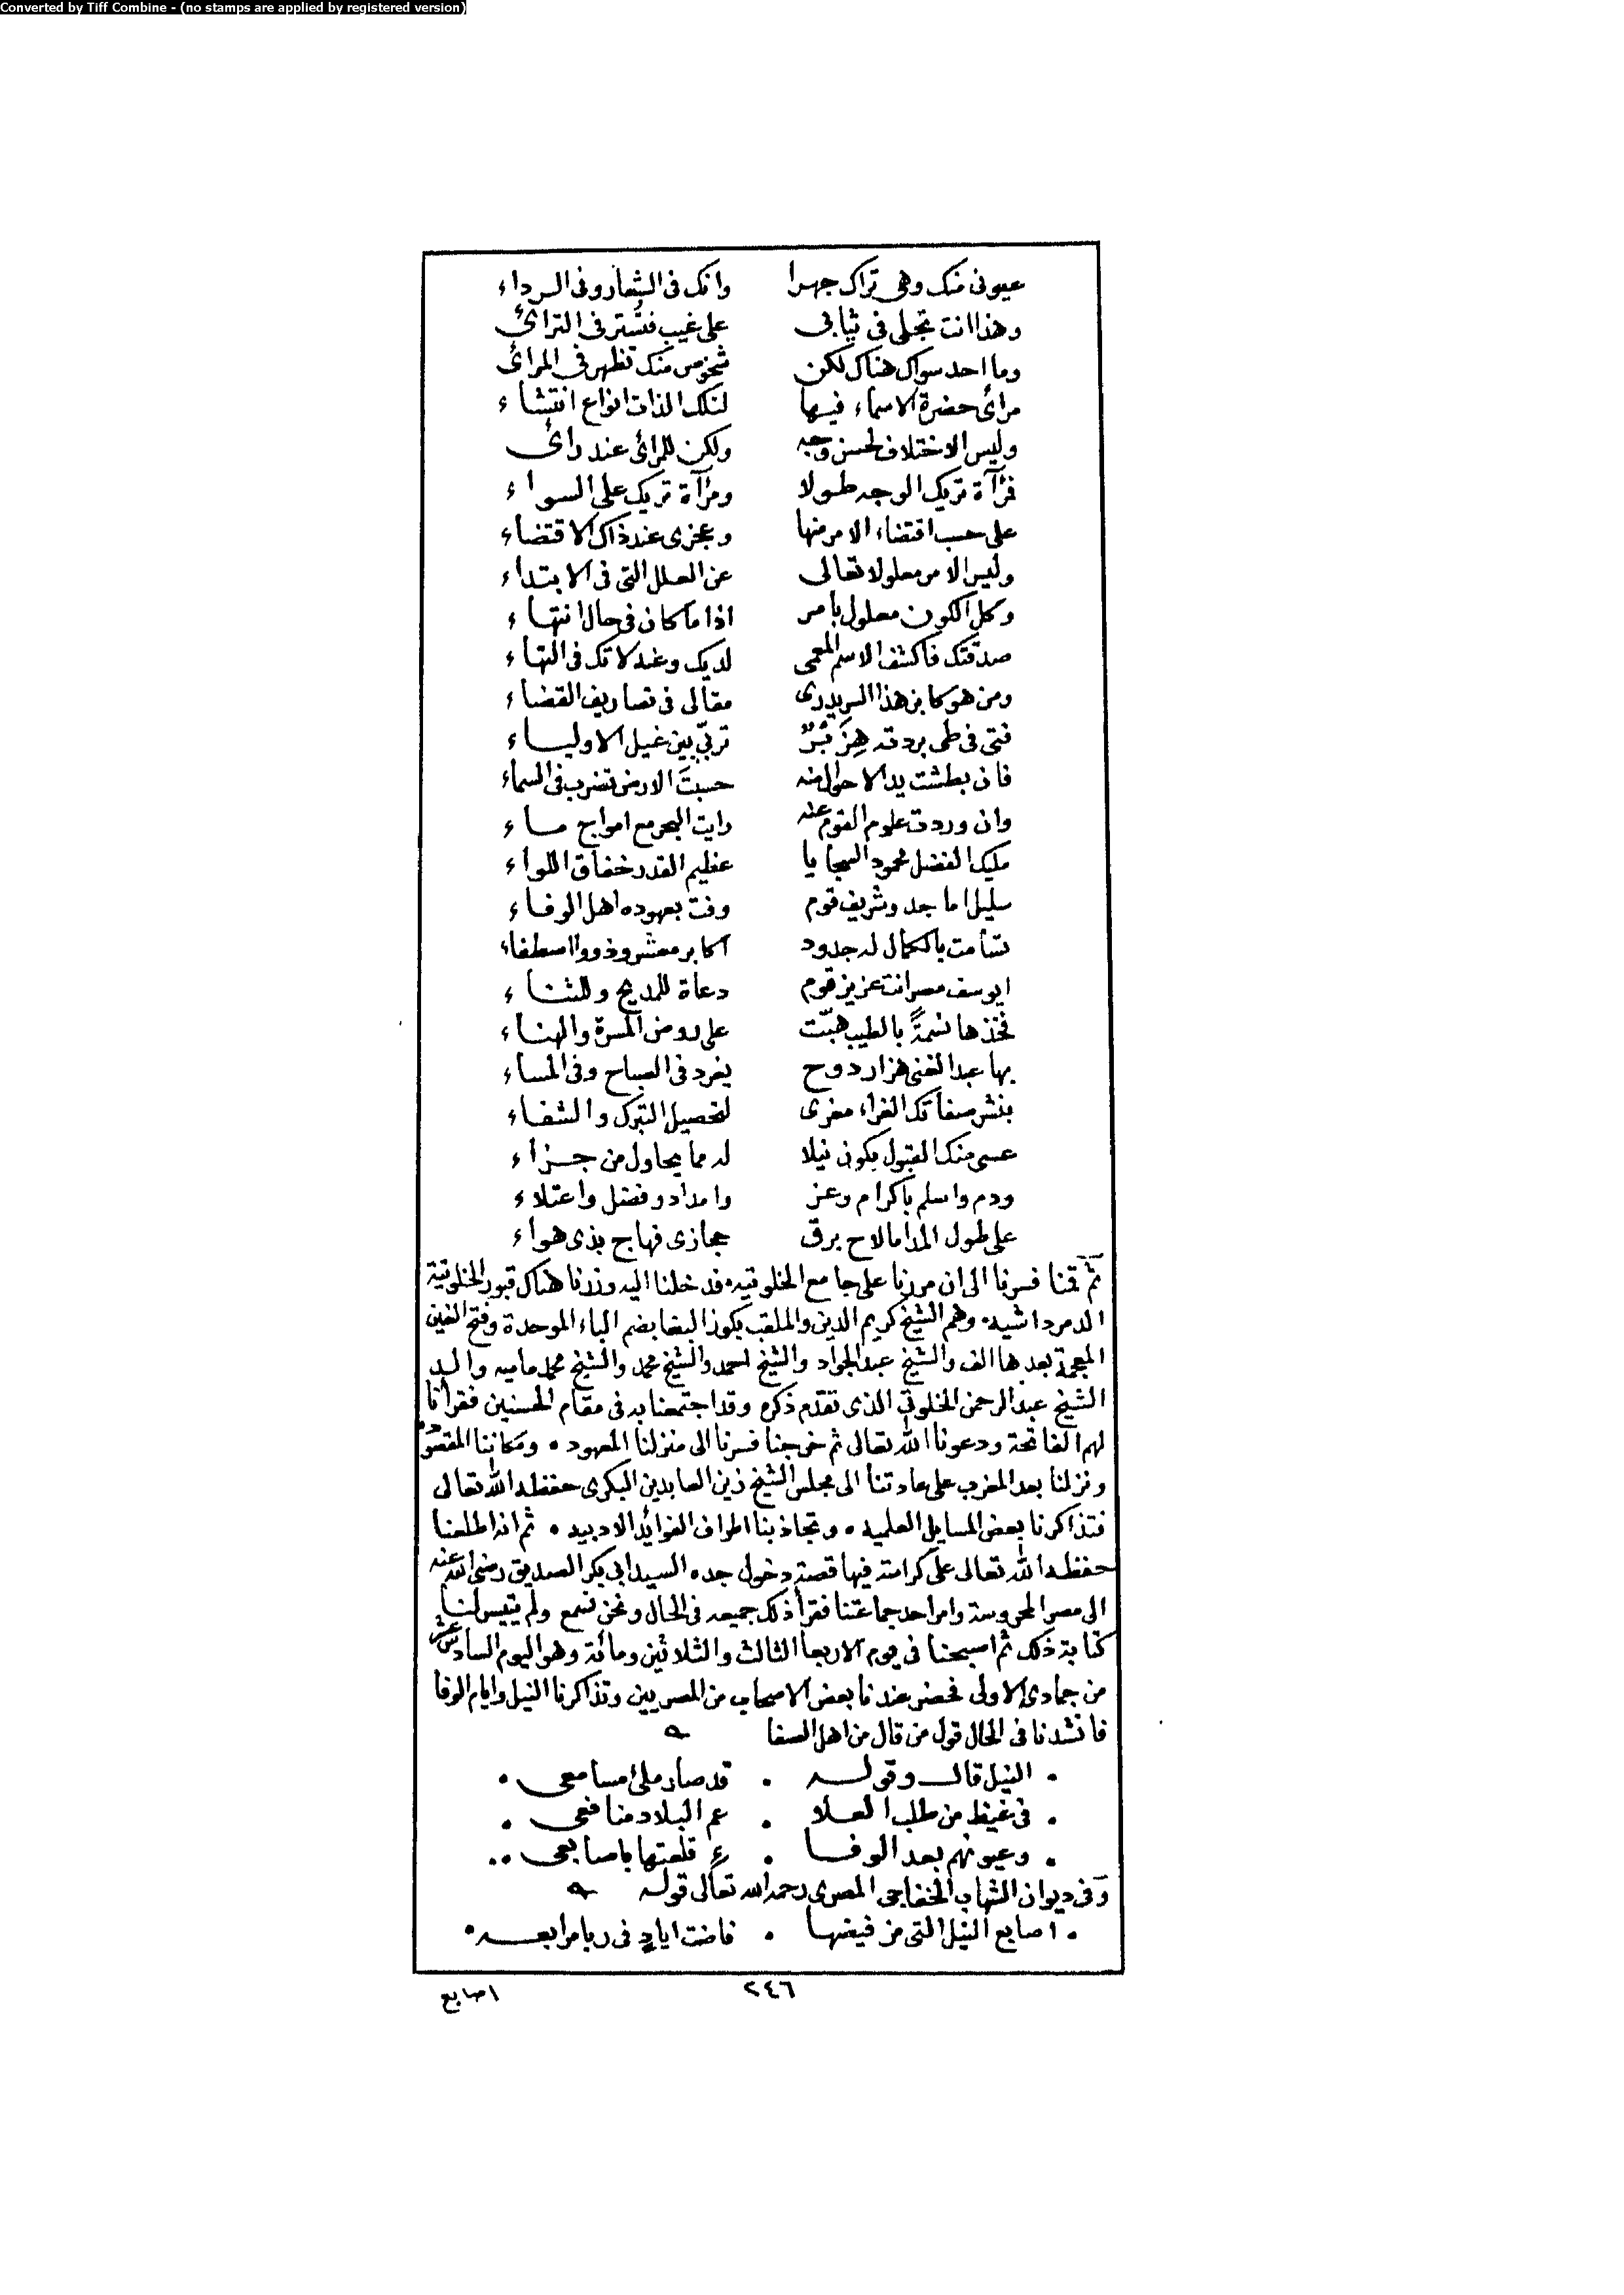 Converted by Tiff Combine - (no stamps are applied by registered version)
عيوني منك وهي تراك جهرا وانك في الشعار وفي الرداء
وهذا انت تجلى في ثيابي على غيب فتستر في الترائ
وما احد سواك هناك لكن شخوص منك تظهر في المرائ
مرائ حضرة الاسماء فيها لتلك الذات انواع انتشاء
وليس الاختلاف لحسن وجه ولكن للمرائ عند رائ
فمرآة تريك الوجه طولا ومرآة تريك على السواء
على حسب اقتضاء الامر منها وعجزى عند ذاك الاقتضاء
وليس الامر معلولا تعالى عن العلل التي في الابتداء
وكل الكون معلول بامر اذا ما كان في حال انتهاء
صدقتك فاكشف الاسم المعمى لديك وعند لا تك في التهاء
ومن هو كابن هذا السر يدرى مقالى في تصاريف القضاء
فتى في طى بردته هزبر تربى بين غيل الاولياء
فان بطشت يد الاحوال منه حسبت الارض تضرب في السماء
وان وردت علوم القوم عنه رايت البحر مع امواج ماء
مليك الفضل محمود السجايا عظيم القدر خفاق اللواء
سليل اماجد وشريف قوم وفت بعهوده اهل الوفاء
تسامت بالكمال له جدود اكابر معشر وذوو اصطفاء
ايوسف مصر انت عزيز قوم دعاة للمديح وللثناء
فخذها نسمة بالطيب هبت على روض المسرة والهناء
بها عبد الغنى هزار دوح يغرد في الصباح وفي المساء
بنشر صفاتك الغراء مغرى لتحصيل التبرك والشفاء
عسى منك القبول يكون نيلا له مما يحاول من جزاء
ودم واسلم باكرام وعز وامداد وفضل واعتلاء
على طول المدا ما لاح برق حجازى فهاج بذى هواء
ثم قمنا فسرنا الى ان مررنا على جامع الخلوتيه فدخلنا اليه وزرنا هناك قبور الخلوتية
الدمرداشيه . وهم الشيخ كريم الدين والملقب بكوز البغا بضم الباء الموحدة وفتح الغين
المعجمة بعدها الف والشيخ عبد الجواد والشيخ احمد والشيخ محمد والشيخ محمد ماميه والـد
الشيخ عبد الرحمن الخلوتي الذى تقدم ذكره وقد اجتمعنا به في مقام الحسنين فقرأنا
لهم الفاتحة ودعونا الله تعالى ثم خرجنا فسرنا الى منزلنا المعهود . ومكاننا المقصود
ونزلنا بعد المغرب على عادتنا الى مجلس الشيخ زين العابدين البكرى حفظه الله تعالى
فتذاكرنا بعض المسايل العلميه . وتجاذبنا اطراف الفوايد الادبيه . ثم انه اطلعنا
حفظه الله تعالى على كرامة فيها قصة دخول جده السيد ابي بكر الصديق رضى الله عنه
الى مصر المحروسة وامر احد جماعتنا فقرأ ذلك جميعه في الحال ونحن نسمع ولم يتيسر لنا
كتابة ذلك ثم اصبحنا في يوم الاربعا الثالث والثلاثين ومائة وهو اليوم السادس عشر
من جمادى الاولى فحضر عندنا بعض الاصحاب من المصريين وتذاكرنا النيل وايام الوفا
فانشدنا في الحال قول من قال من اهل الصفا
. النيل قال وقوله . قد صار ملئ مسامعى .
. في غيظ من طلب العلا . عم البلاد منافعى .
. وعيونهم بعد الوفا . قلعتها باصابعى ..
وفي ديوان الشهاب الخفاجى المصرى رحمه الله تعالى قوله
. اصابع النيل التي من فيضها . فاضت اياد في ربا مرابعه .
٢٤٦
اصابع